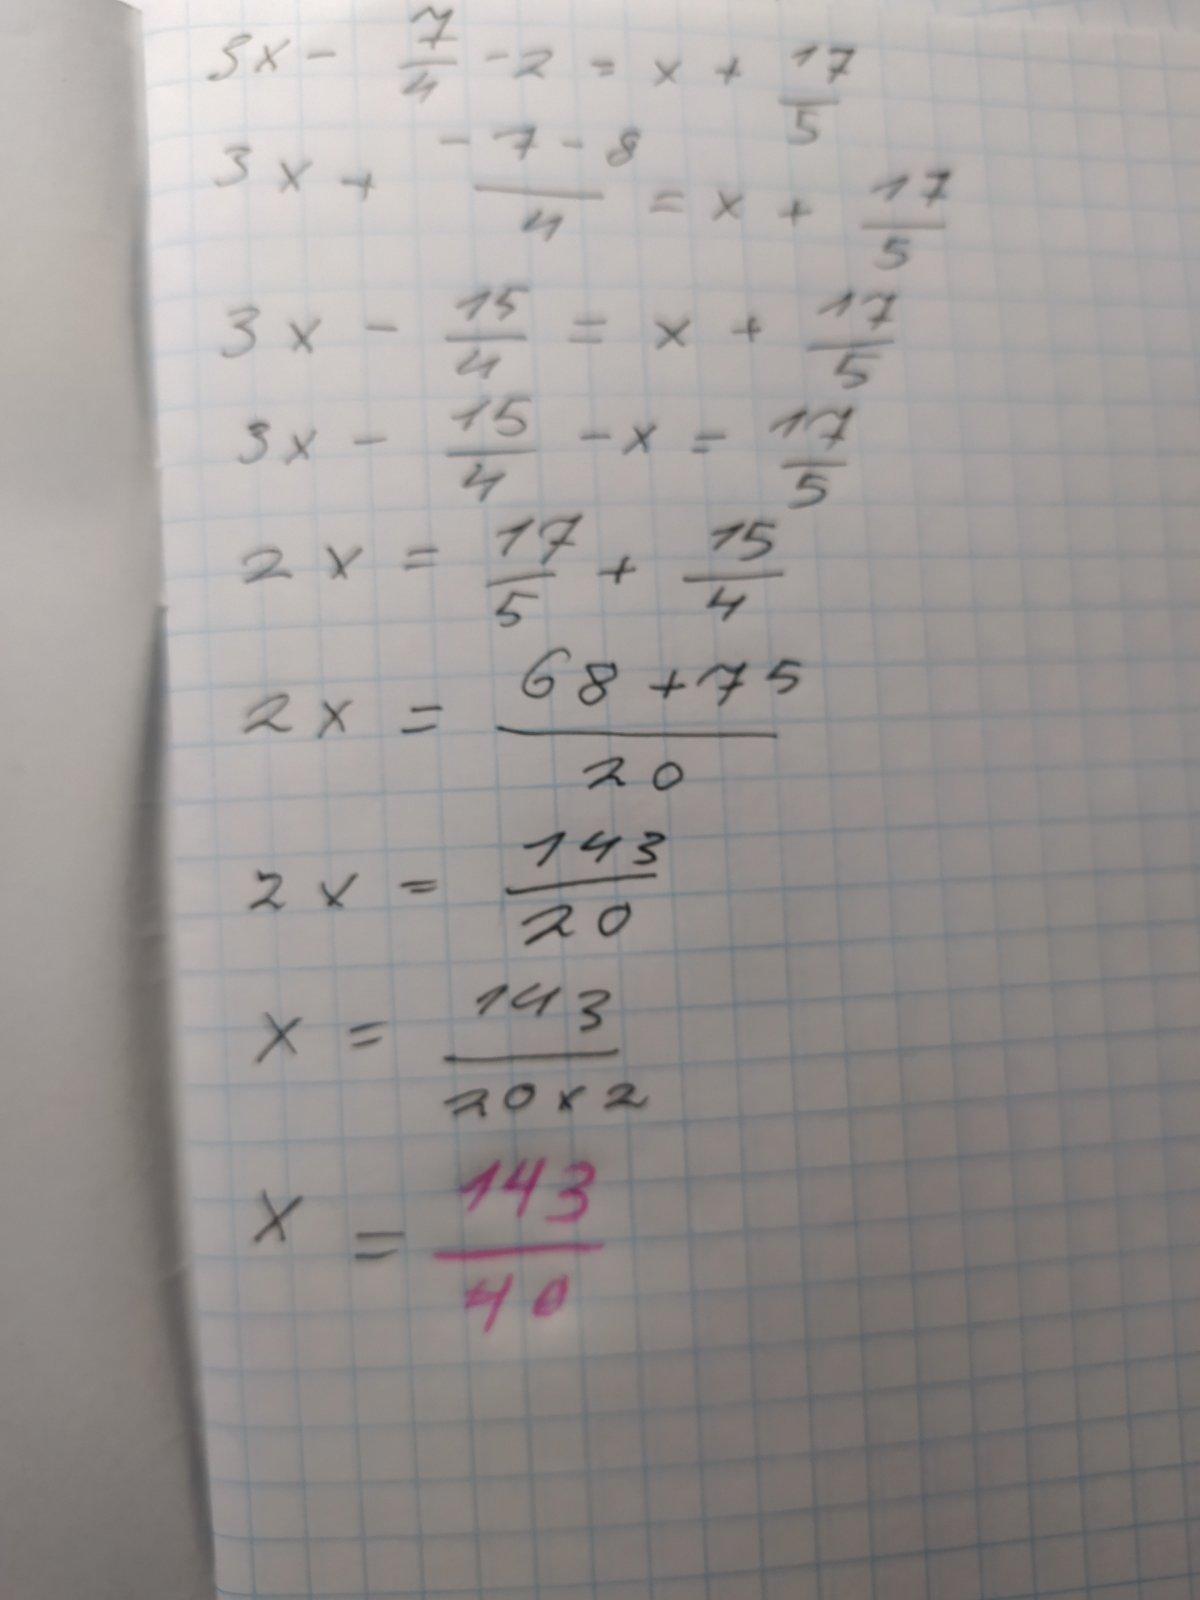 3x - 7/4 - 2 = x + 17/5
3x + (-7-8)/4 = x + 17/5
3x - 15/4 = x + 17/5
3x - 15/4 - x = 17/5
2x = 17/5 + 15/4
2x = (68+75)/20
2x = 143/20
x = 143/(20×2)
x = 143/40